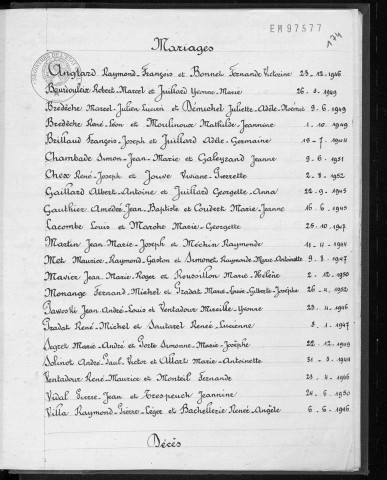 EM97577
174
Mariages
Anglard Raymond-François et Bonnet Fernande Victorine 23-12-1946
Bourdouleix Robert-Marcel et Juillard Yvonne-Marie 26-2-1949
Bredèche Marcel-Julien Lucien et Démichel Juliette-Adèle-Noémie 9-6-1949
Bredèche René-Léon et Moulinoux Mathilde-Jeannine 1-10-1949
Brillaud François-Joseph et Juillard Adèle-Germaine 19-7-1944
Chambade Simon-Jean-Marie et Galeyzand Jeanne 9-6-1951
Chex René-Joseph et Jouve Viviane-Pierrette 2-8-1952
Gaillard Albert-Antoine et Juillard Georgette-Anna 22-9-1945
Gauthier Amédée-Jean-Baptiste et Coudert Marie-Jeanne 16-6-1945
Lacombe Louis et Marche Marie-Georgette 25-10-1947
Martin Jean-Marie-Joseph et Méchin Raymonde 11-11-1944
Met Maurice-Raymond-Gaston et Simonet Raymonde-Marie-Antoinette 9-8-1947
Mavier Jean-Marie-Roger et Roussillon Marie-Hélène 2-12-1950
Monange Fernand-Michel et Pradat Marie-Louise-Gilberte-Josèphe 26-4-1952
Pawoski Jean-André-Louis et Ventadour Mireille-Yvonne 23-4-1946
Pradat René-Michel et Sautarel Renée-Lucienne 3-1-1947
Segret Marie-André et Porte Simonne-Marie-Josèphe 22-12-1949
Solinot André-Paul-Victor et Allart Marie-Antoinette 31-3-1948
Ventadour René-Maurice et Monteil Fernande 23-4-1946
Vidal Pierre-Jean et Trespeuch Jeannine 24-6-1950
Villa Raymond-Pierre-Léger et Bachellerie Renée-Angèle 6-6-1946
Décès